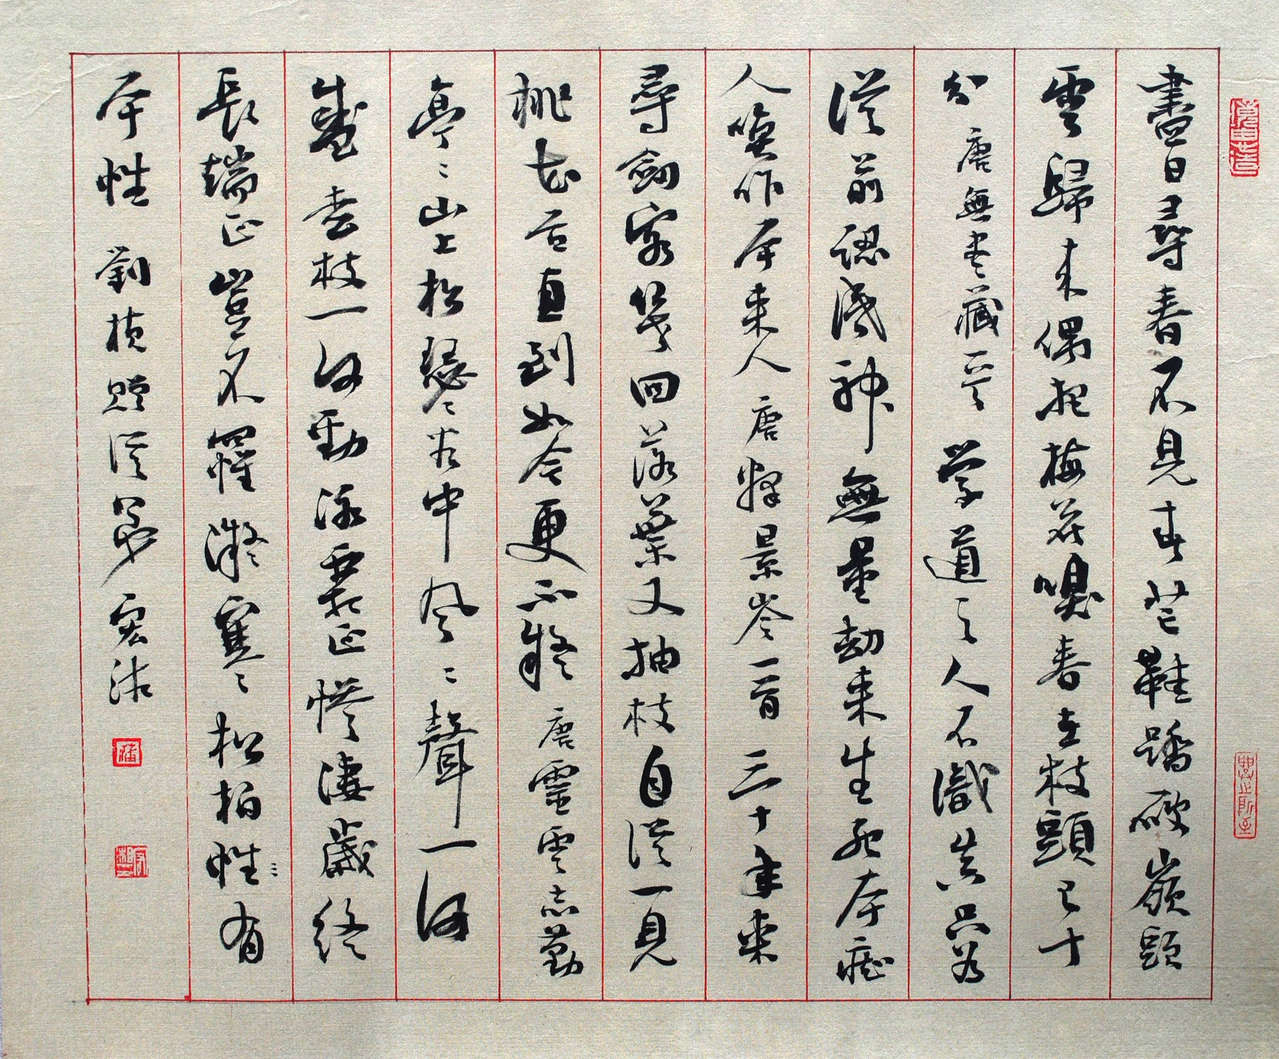 盡日尋春不見春芒鞋踏破嶺頭
雲歸来偶把梅花嗅春在枝頭已十
分 唐無尽藏一首 学道之人不識真只為
從前認識神無量劫来生死本癡
人喚作本来人 唐釋景岑一首 三十年来
尋劍客幾回落葉又抽枝自從一見
桃花后直到如今更不疑 唐靈雲志勤
亭〻山上松瑟〻谷中風〻聲一何
盛枩枝一何勁冰霜正慘淒歲終
長端正豈不罹凝寒〻松柏性有
本性 劉楨贈從弟 宏